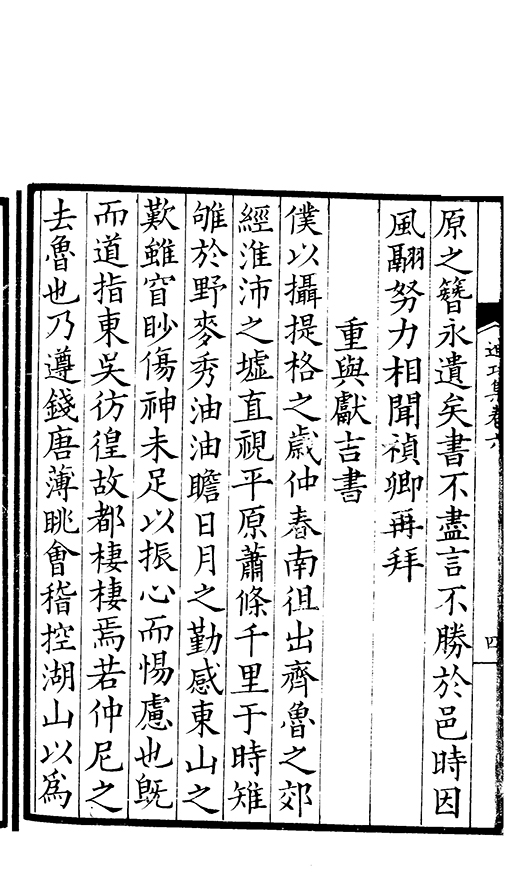 迪功集卷六
四
原之簪永遺矣書不盡言不勝於邑時因
風翮努力相聞禎卿再拜
重與獻吉書
僕以攝提格之歲仲春南徂出齊魯之郊
經淮沛之墟直視平原蕭條千里于時雉
雊於野麥秀油油瞻日月之勤感東山之
歎雖窅眇傷神未足以振心而惕慮也旣
而道指東吳彷徨故都棲棲焉若仲尼之
去魯也乃遵錢唐薄眺會稽控湖山以爲